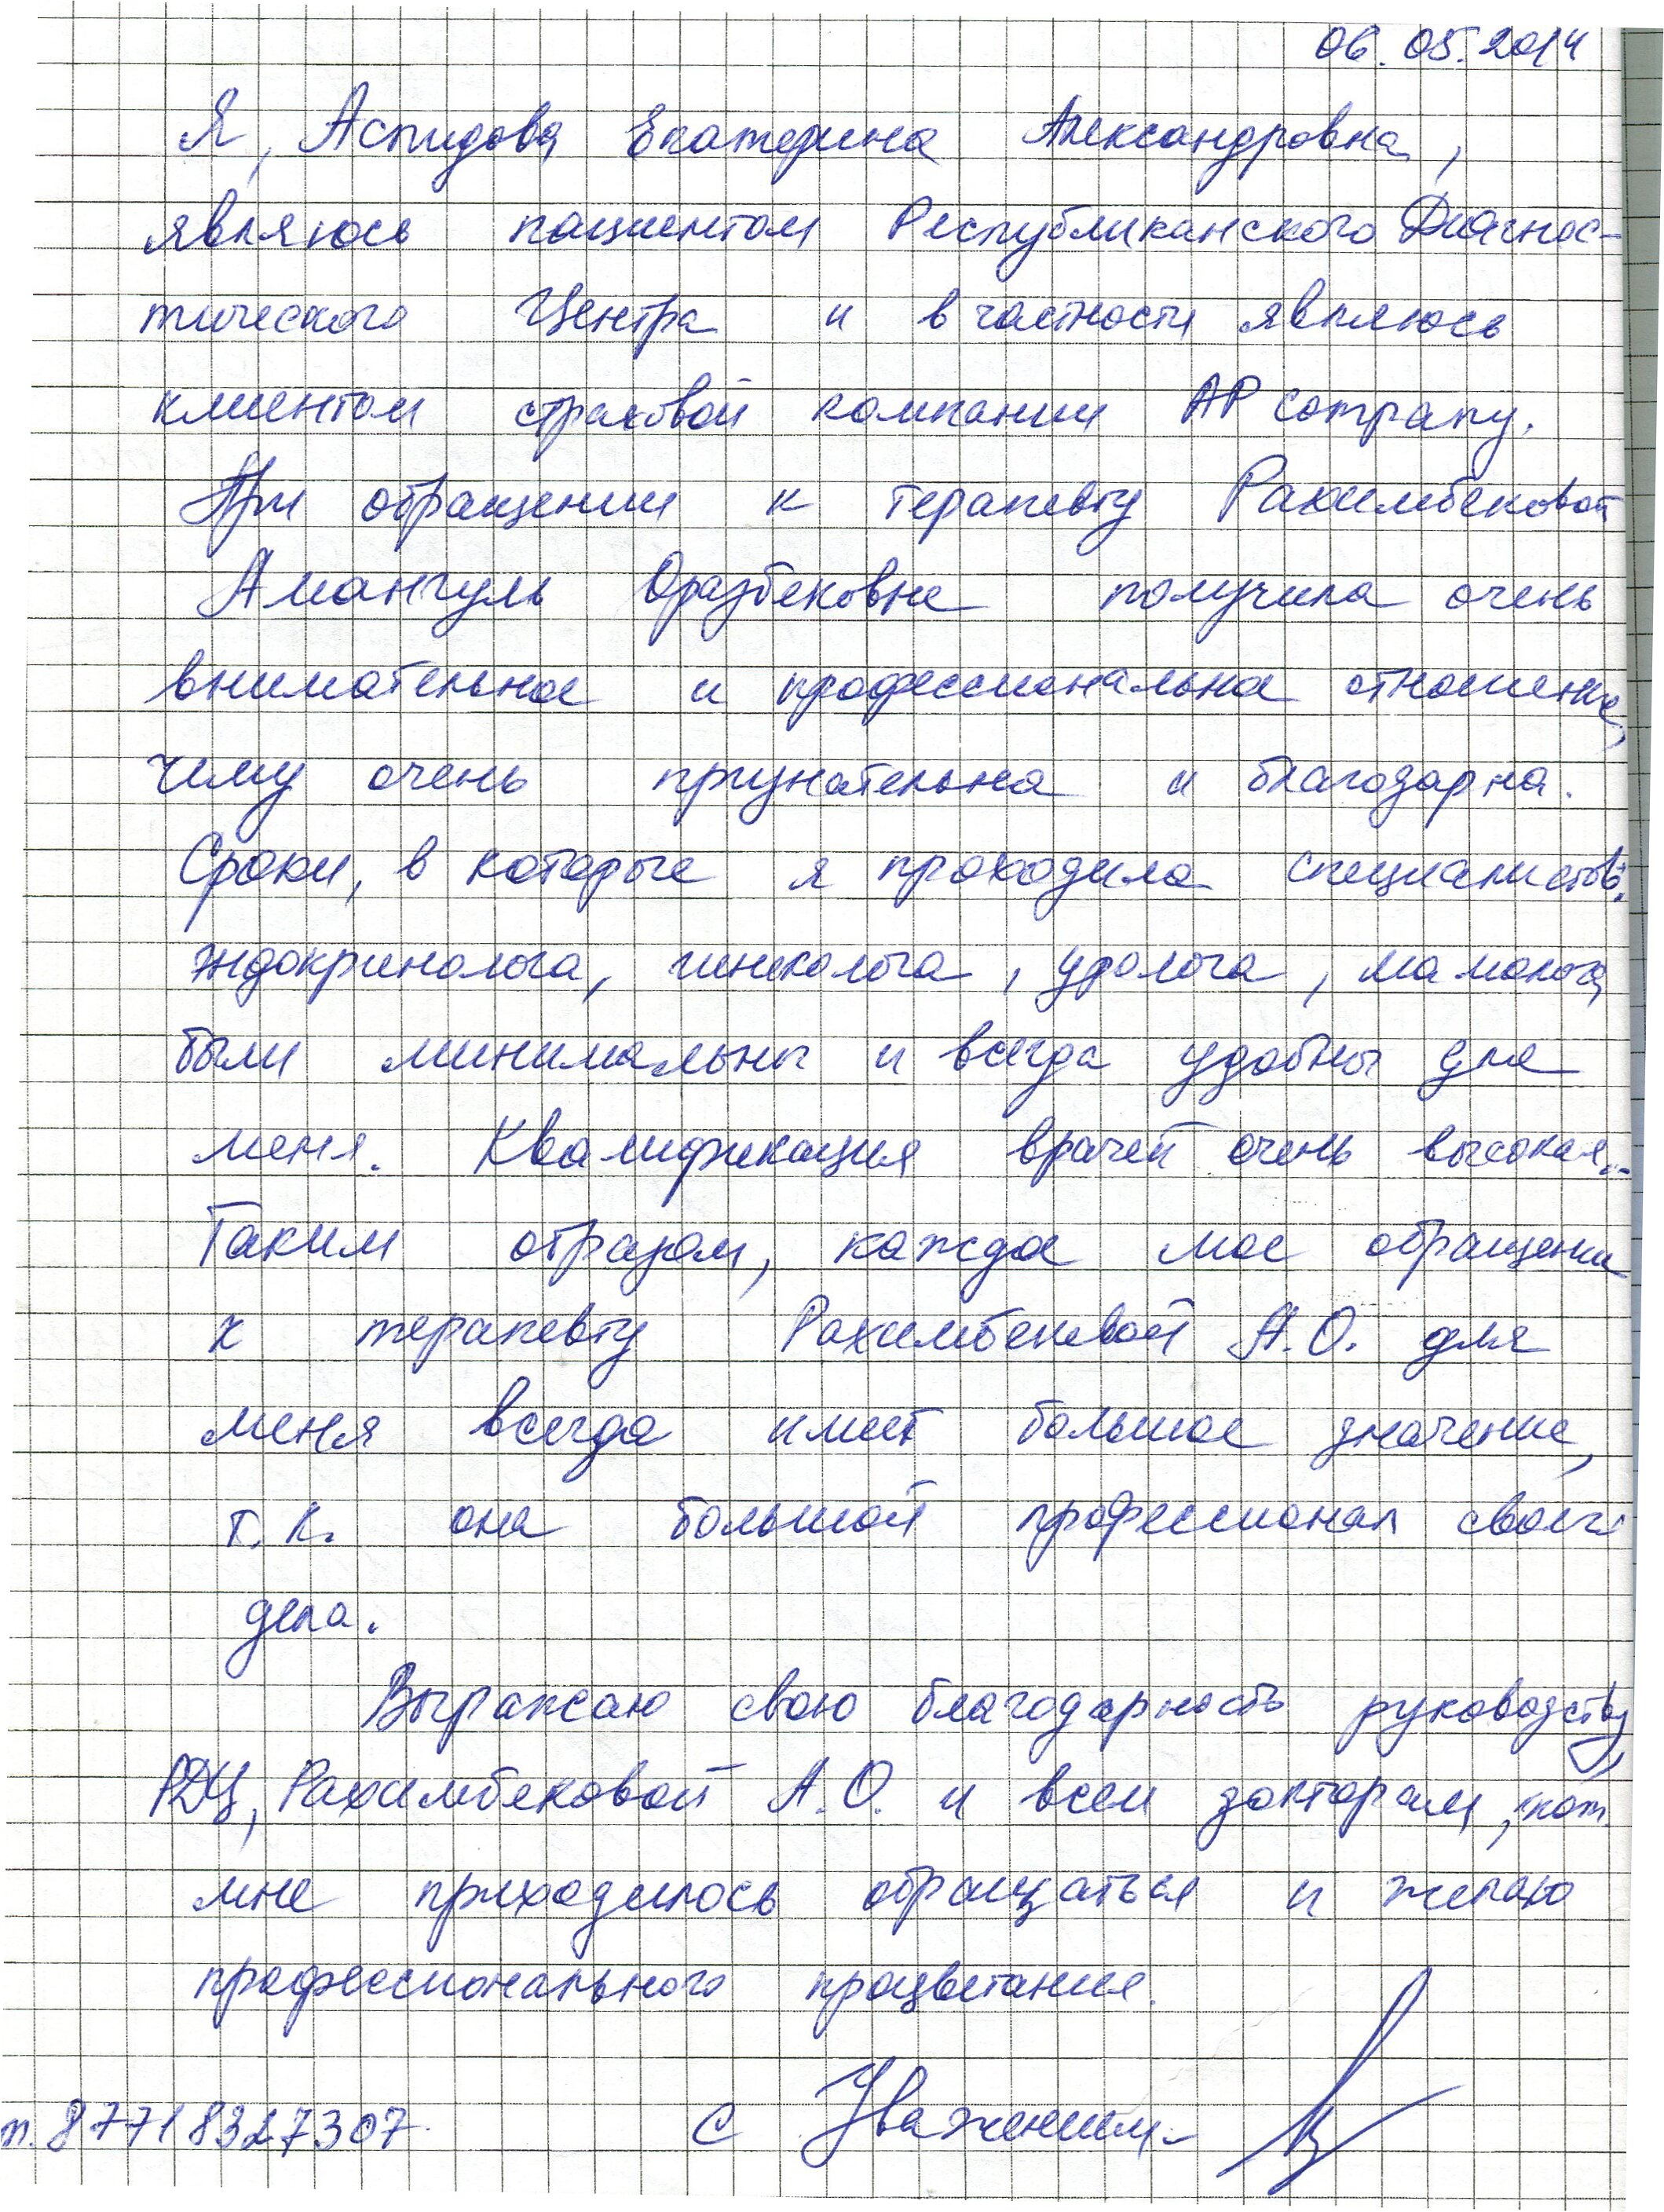 06.05.2014
Я, Аспидова Екатерина Александровна,
являюсь пациентом Республиканского Диагнос-
тического Центра и в частности являюсь
клиентом страховой компании АР company.
При обращении к терапевту Рахимбековой
Амангуль Оразбековне получила очень
внимательное и профессиональное отношение,
чему очень признательна и благодарна.
Сроки, в которые я проходила специалистов:
эндокринолога, гинеколога, уролога, мамолога,
были минимальны и всегда удобны для
меня. Квалификация врачей очень высокая.
Таким образом, каждое мое обращение
к терапевту Рахимбековой А.О. для
меня всегда имеет большое значение,
т.к. она большой профессионал своего
дела.
Выражаю свою благодарность руководству
РДЦ, Рахимбековой А.О. и всем докторам, кот.
мне приходилось обращаться и желаю
профессионального процветания.
т. 87718327307 С Уважением